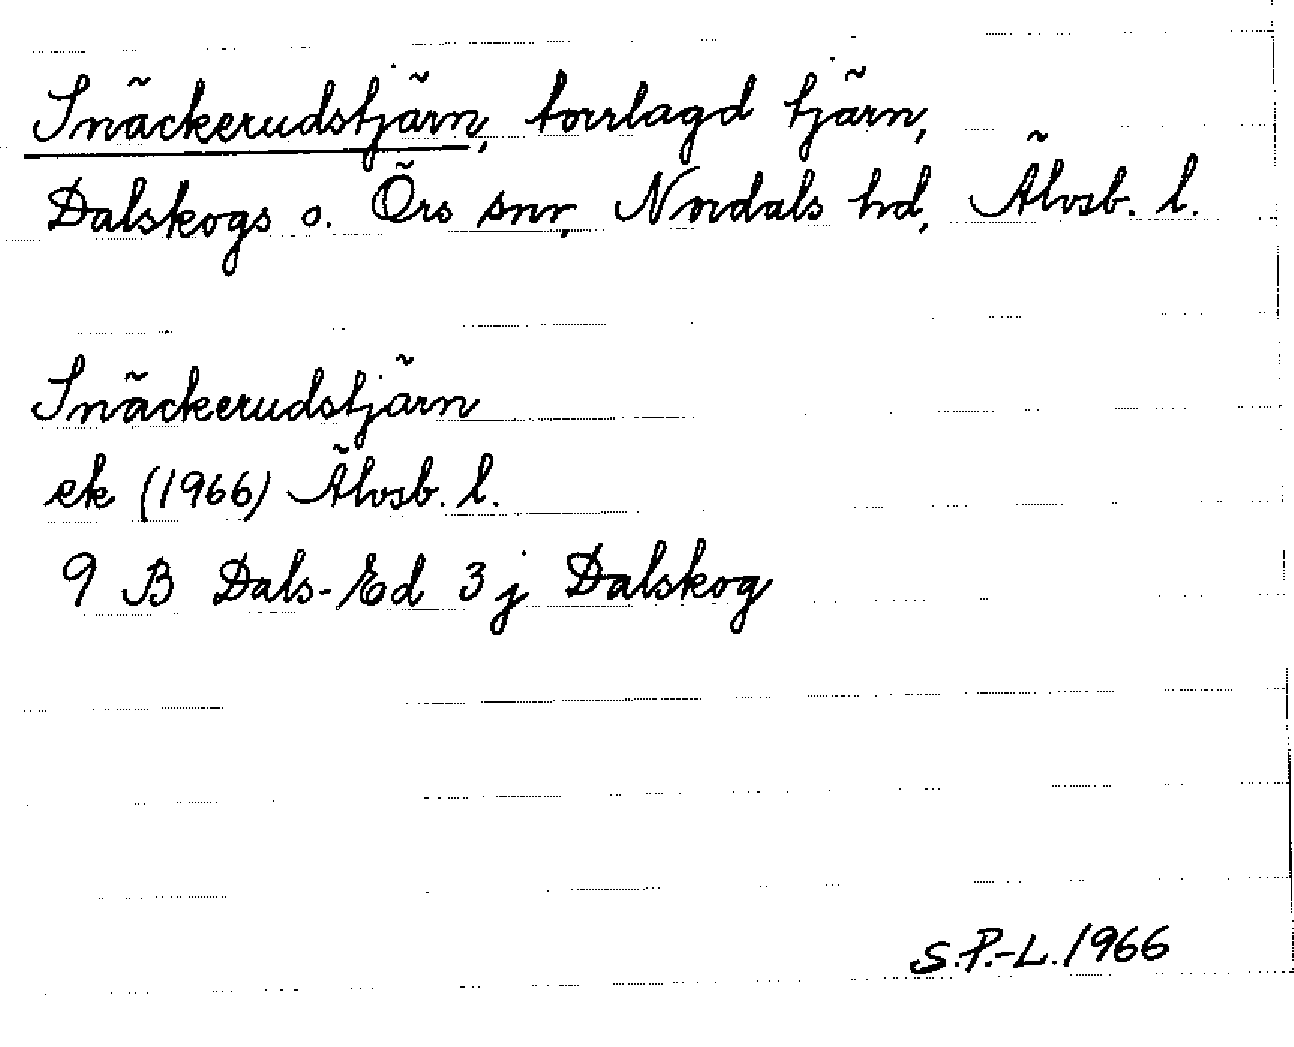 Snäckerudstjärn, torrlagd tjärn,
Dalskogs o. Örs snr, Nordals hd, Älvsb. l.
Snäckerudstjärn
ek (1966) Älvsb. l.
9 B Dals-Ed 3 j Dalskog
S.P.-L. 1966